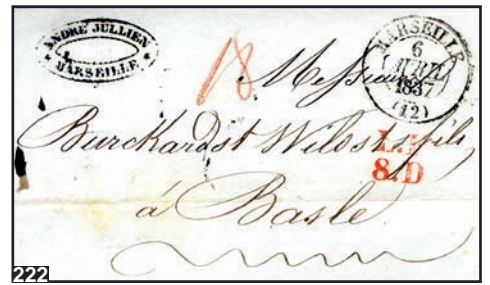 ANDRÉ JULLIEN
MARSEILLE
MARSEILLE
6
1837
(12)
18
Messieurs
Burckardst Wilds fils
L.
8.D
á Basle
222